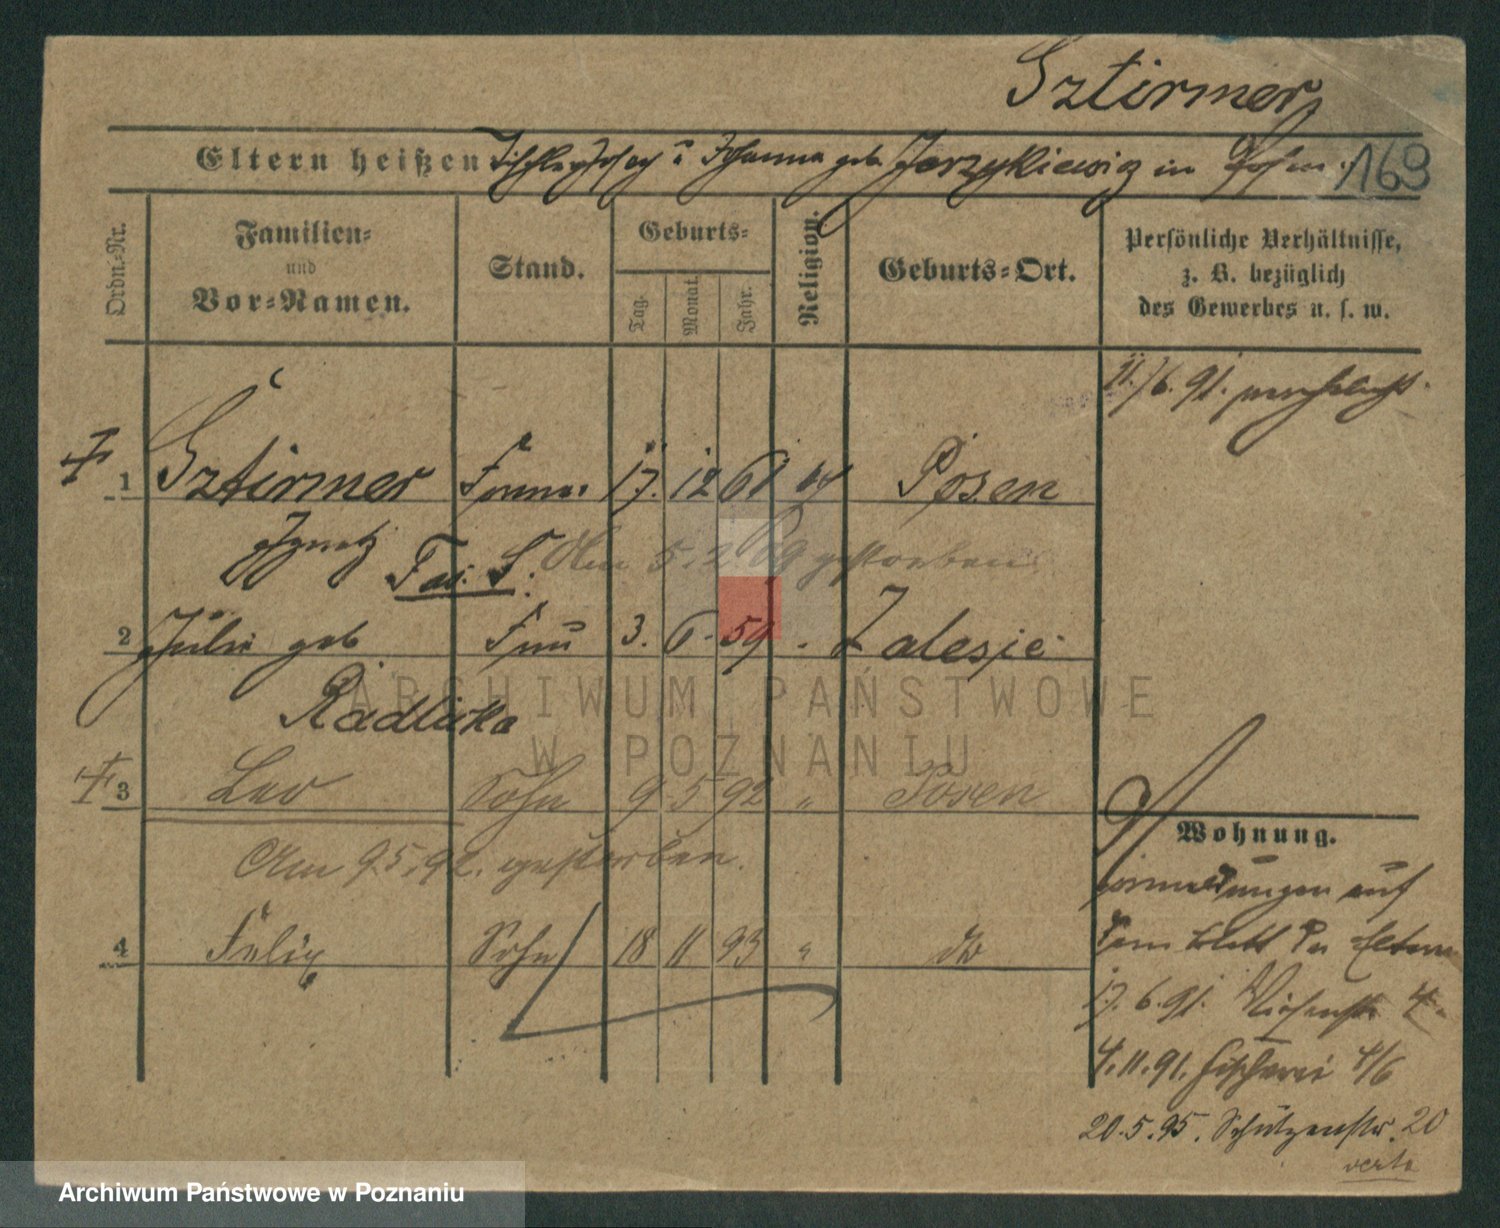 Sztirmer
Eltern heißen Tischler Joseph u Johanna geb. Jerzykiewicz in Posen 169
Ordn.-Nr.
Familien-
und
Vor-Namen.
Stand.
Geburts-
Tag.
Monat.
Jahr.
Religion.
Geburts-Ort.
Persönliche Verhältnisse,
z. B. bezüglich
des Gewerbes u. s. w.
11./6.91. verehelicht.
1 Sztirmer Former 17. 12 61 kt Posen
Ignatz Fai. S. Am 5.2.09 gestorben
2 Julie geb Frau 3. 6. 59 Zalesie
Radlicka
3 Leo Sohn 9 5 92 " Posen
Am 9.5.92. gestorben.
4 Felix Sohn 18 11 93 " do
Wohnung.
auf
dem Blatt der Eltern
17.6.91. Wiesenstr. 4.
4.11.91. Fischerei 4/6
20.5.95. Schützenstr. 20
verte
ARCHIWUM PAŃSTWOWE
W POZNANIU
Archiwum Państwowe w Poznaniu